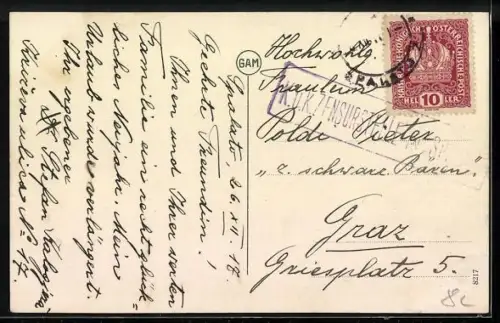 Spalato, 26.XII.17.
Geehrte Freundin!
Ihnen und Ihrer werten
Familie ein recht glück-
liches Neujahr. Mein
Urlaub wurde verlängert.
Ihr ergebener
Stefan
ulica No 17.
GAM
Hochwohlg.
Fräulein
Polde
"z. schwarz. Bären"
Graz
Griesplatz 5.
K.u.K. ZENSURSTELLE
SPALATO
KAISERLICHE KÖNIGLICHE ÖSTERREICHISCHE POST
HEL 10 LER
8217